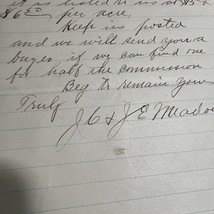 it is listed to us at $5 &
$6.50 per acre,
Keep us posted
and we will send you a
buyer, if we can find one
for half the commission
Beg to remain yours
Truly
J C & J E Meador